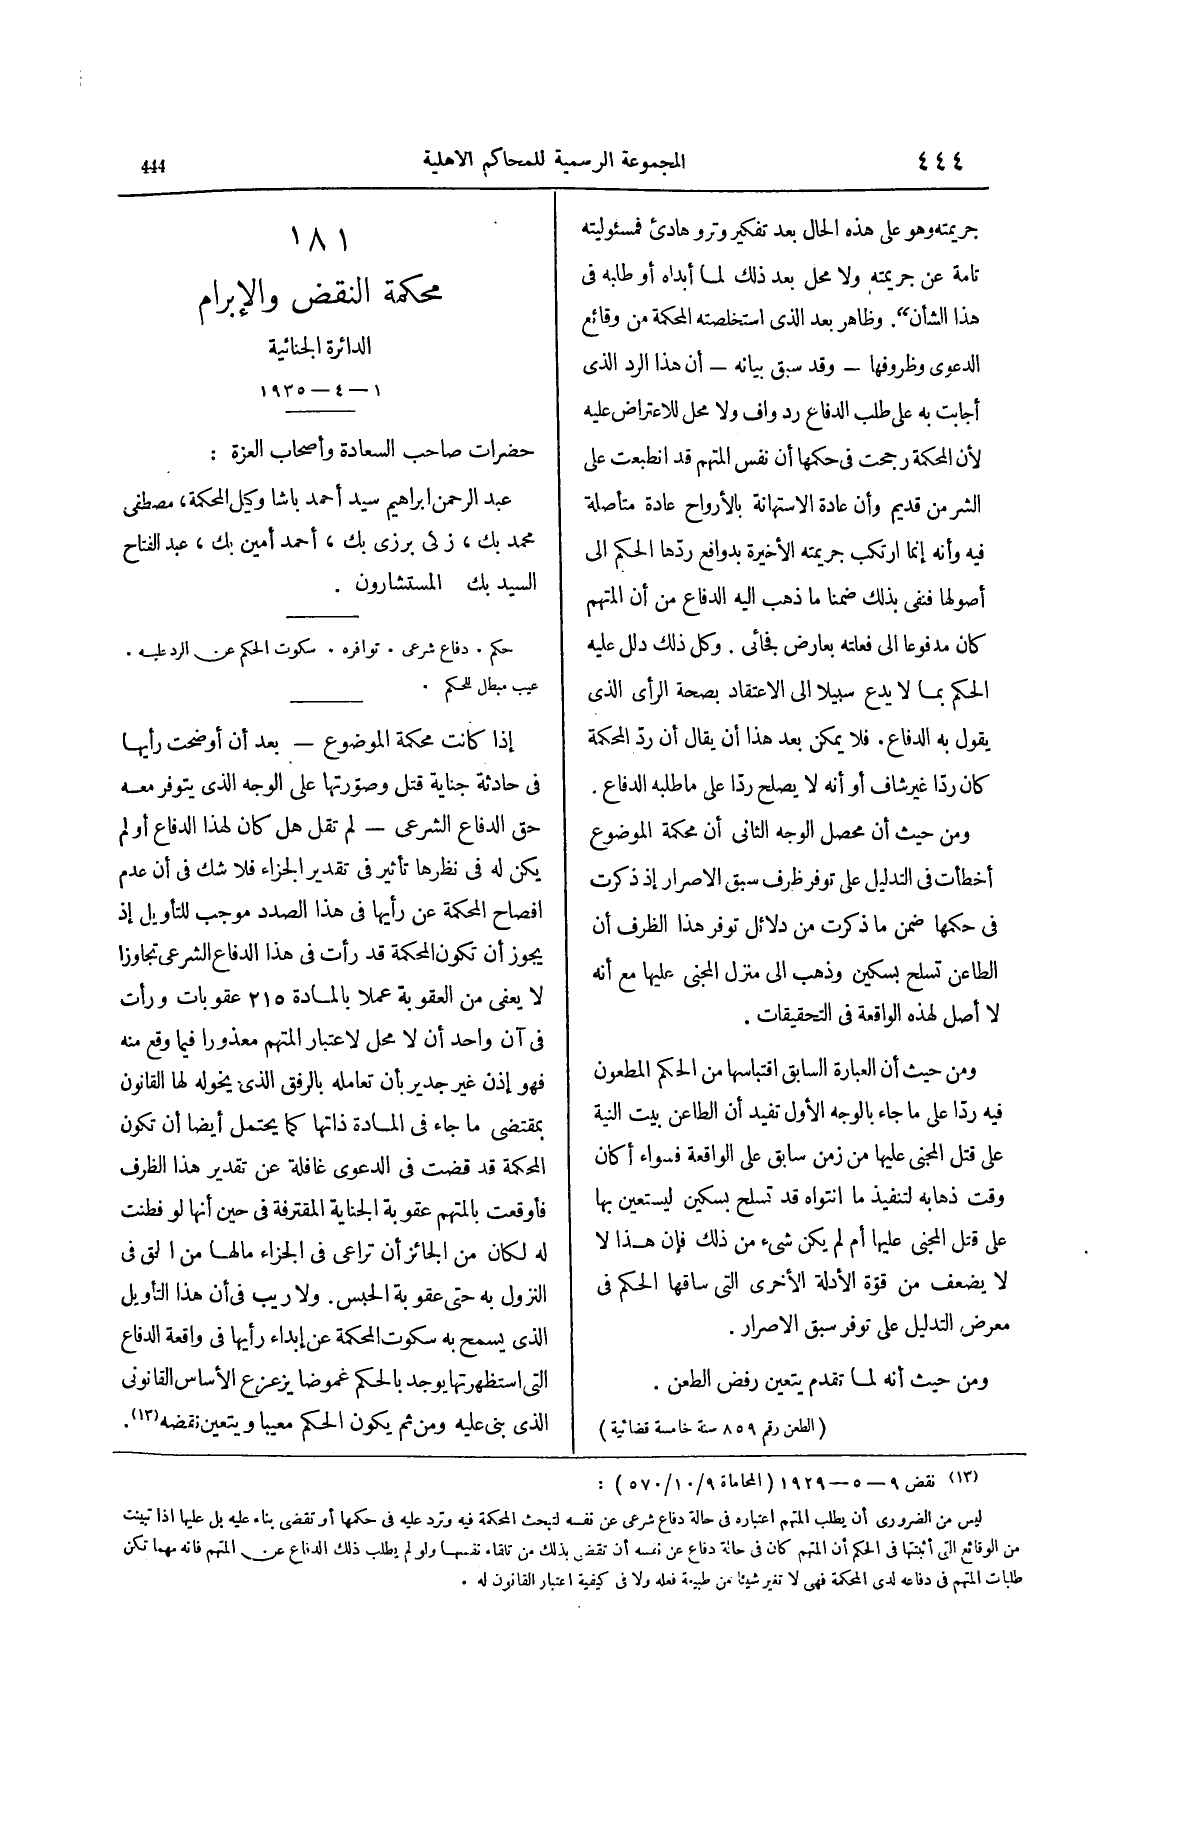 ٤٤٤ المجموعة الرسمية للمحاكم الاهلية 444
جريمته وهو على هذه الحال بعد تفكير وترو هادئ فمسئوليته
تامة عن جريمته ولا محل بعد ذلك لما أبداه أو طلبه فى
هذا الشأن“. وظاهر بعد الذى استخلصته المحكمة من وقائع
الدعوى وظروفها — وقد سبق بيانه — أن هذا الرد الذى
أجابت به على طلب الدفاع رد واف ولا محل للاعتراض عليه
لأن المحكمة رجحت فى حكمها أن نفس المتهم قد انطبعت على
الشر من قديم وأن عادة الاستهانة بالأرواح عادة متأصلة
فيه وأنه إنما ارتكب جريمته الأخيرة بدوافع ردّها الحكم الى
أصولها فنفى بذلك ضمنا ما ذهب اليه الدفاع من أن المتهم
كان مدفوعا الى فعلته بعارض فجائى . وكل ذلك دلل عليه
الحكم بما لا يدع سبيلا الى الاعتقاد بصحة الرأى الذى
يقول به الدفاع . فلا يمكن بعد هذا أن يقال أن ردّ المحكمة
كان ردّا غير شاف أو أنه لا يصلح ردّا على ما طلبه الدفاع .
ومن حيث أن محصل الوجه الثانى أن محكمة الموضوع
أخطأت فى التدليل على توفر ظرف سبق الاصرار إذ ذكرت
فى حكمها ضمن ما ذكرت من دلائل توفر هذا الظرف أن
الطاعن تسلح بسكين وذهب الى منزل المجنى عليها مع أنه
لا أصل لهذه الواقعة فى التحقيقات .
ومن حيث أن العبارة السابق اقتباسها من الحكم المطعون
فيه ردّا على ما جاء بالوجه الأول تفيد أن الطاعن بيت النية
على قتل المجنى عليها من زمن سابق على الواقعة فسواء أكان
وقت ذهابه لتنفيذ ما انتواه قد تسلح بسكين ليستعين بها
على قتل المجنى عليها أم لم يكن شىء من ذلك فإن هذا لا
لا يضعف من قوّة الأدلة الأخرى التى ساقها الحكم فى
معرض التدليل على توفر سبق الاصرار .
ومن حيث أنه لما تقدم يتعين رفض الطعن .
(الطعن رقم ٨٥٩ سنة خامسة قضائية)
١٨١
محكمة النقض والإبرام
الدائرة الجنائية
١ — ٤ — ١٩٣٥
حضرات صاحب السعادة وأصحاب العزة :
عبد الرحمن ابراهيم سيد أحمد باشا وكيل المحكمة، مصطفى
محمد بك ، زكى برزى بك ، أحمد أمين بك ، عبد الفتاح
السيد بك المستشارون .
حكم . دفاع شرعى . توافره . سكوت الحكم عن الرد عليه .
عيب مبطل للحكم .
إذا كانت محكمة الموضوع — بعد أن أوضحت رأيها
فى حادثة جناية قتل وصوّرتها على الوجه الذى يتوفر معه
حق الدفاع الشرعى — لم تقل هل كان لهذا الدفاع أو لم
يكن له فى نظرها تأثير فى تقدير الجزاء فلا شك فى أن عدم
افصاح المحكمة عن رأيها فى هذا الصدد موجب للتأويل إذ
يجوز أن تكون المحكمة قد رأت فى هذا الدفاع الشرعى تجاوزا
لا يعفى من العقوبة عملا بالمادة ٢١٥ عقوبات ورأت
فى آن واحد أن لا محل لاعتبار المتهم معذورا فيما وقع منه
فهو إذن غير جدير بأن تعامله بالرفق الذى يخوله لها القانون
بمقتضى ما جاء فى المادة ذاتها كما يحتمل أيضا أن تكون
المحكمة قد قضت فى الدعوى غافلة عن تقدير هذا الظرف
فأوقعت بالمتهم عقوبة الجناية المقترفة فى حين أنها لو فطنت
له لكان من الجائز أن تراعى فى الجزاء مالها من الحق فى
النزول به حتى عقوبة الحبس . ولا ريب فى أن هذا التأويل
الذى يسمح به سكوت المحكمة عن إبداء رأيها فى واقعة الدفاع
التى استظهرتها يوجد بالحكم غموضا يزعزع الأساس القانونى
الذى بنى عليه ومن ثم يكون الحكم معيبا ويتعين نقضه (١٣).
(١٣) نقض ٩ — ٥ — ١٩٢٩ (المحاماة ٥٧٠/١٠/٩) :
ليس من الضرورى أن يطلب المتهم اعتباره فى حالة دفاع شرعى عن نفسه لتبحث المحكمة فيه وترد عليه فى حكمها أو تقضى بناء عليه بل عليها اذا تبينت
من الوقائع التى أثبتتها فى الحكم أن المتهم كان فى حالة دفاع عن نفسه أن تقضى بذلك من تلقاء نفسها ولو لم يطلب ذلك الدفاع عن المتهم فانه مهما تكن
طلبات المتهم فى دفاعه لدى المحكمة فهى لا تغير شيئا من طبيعة فعله ولا فى كيفية اعتبار القانون له .